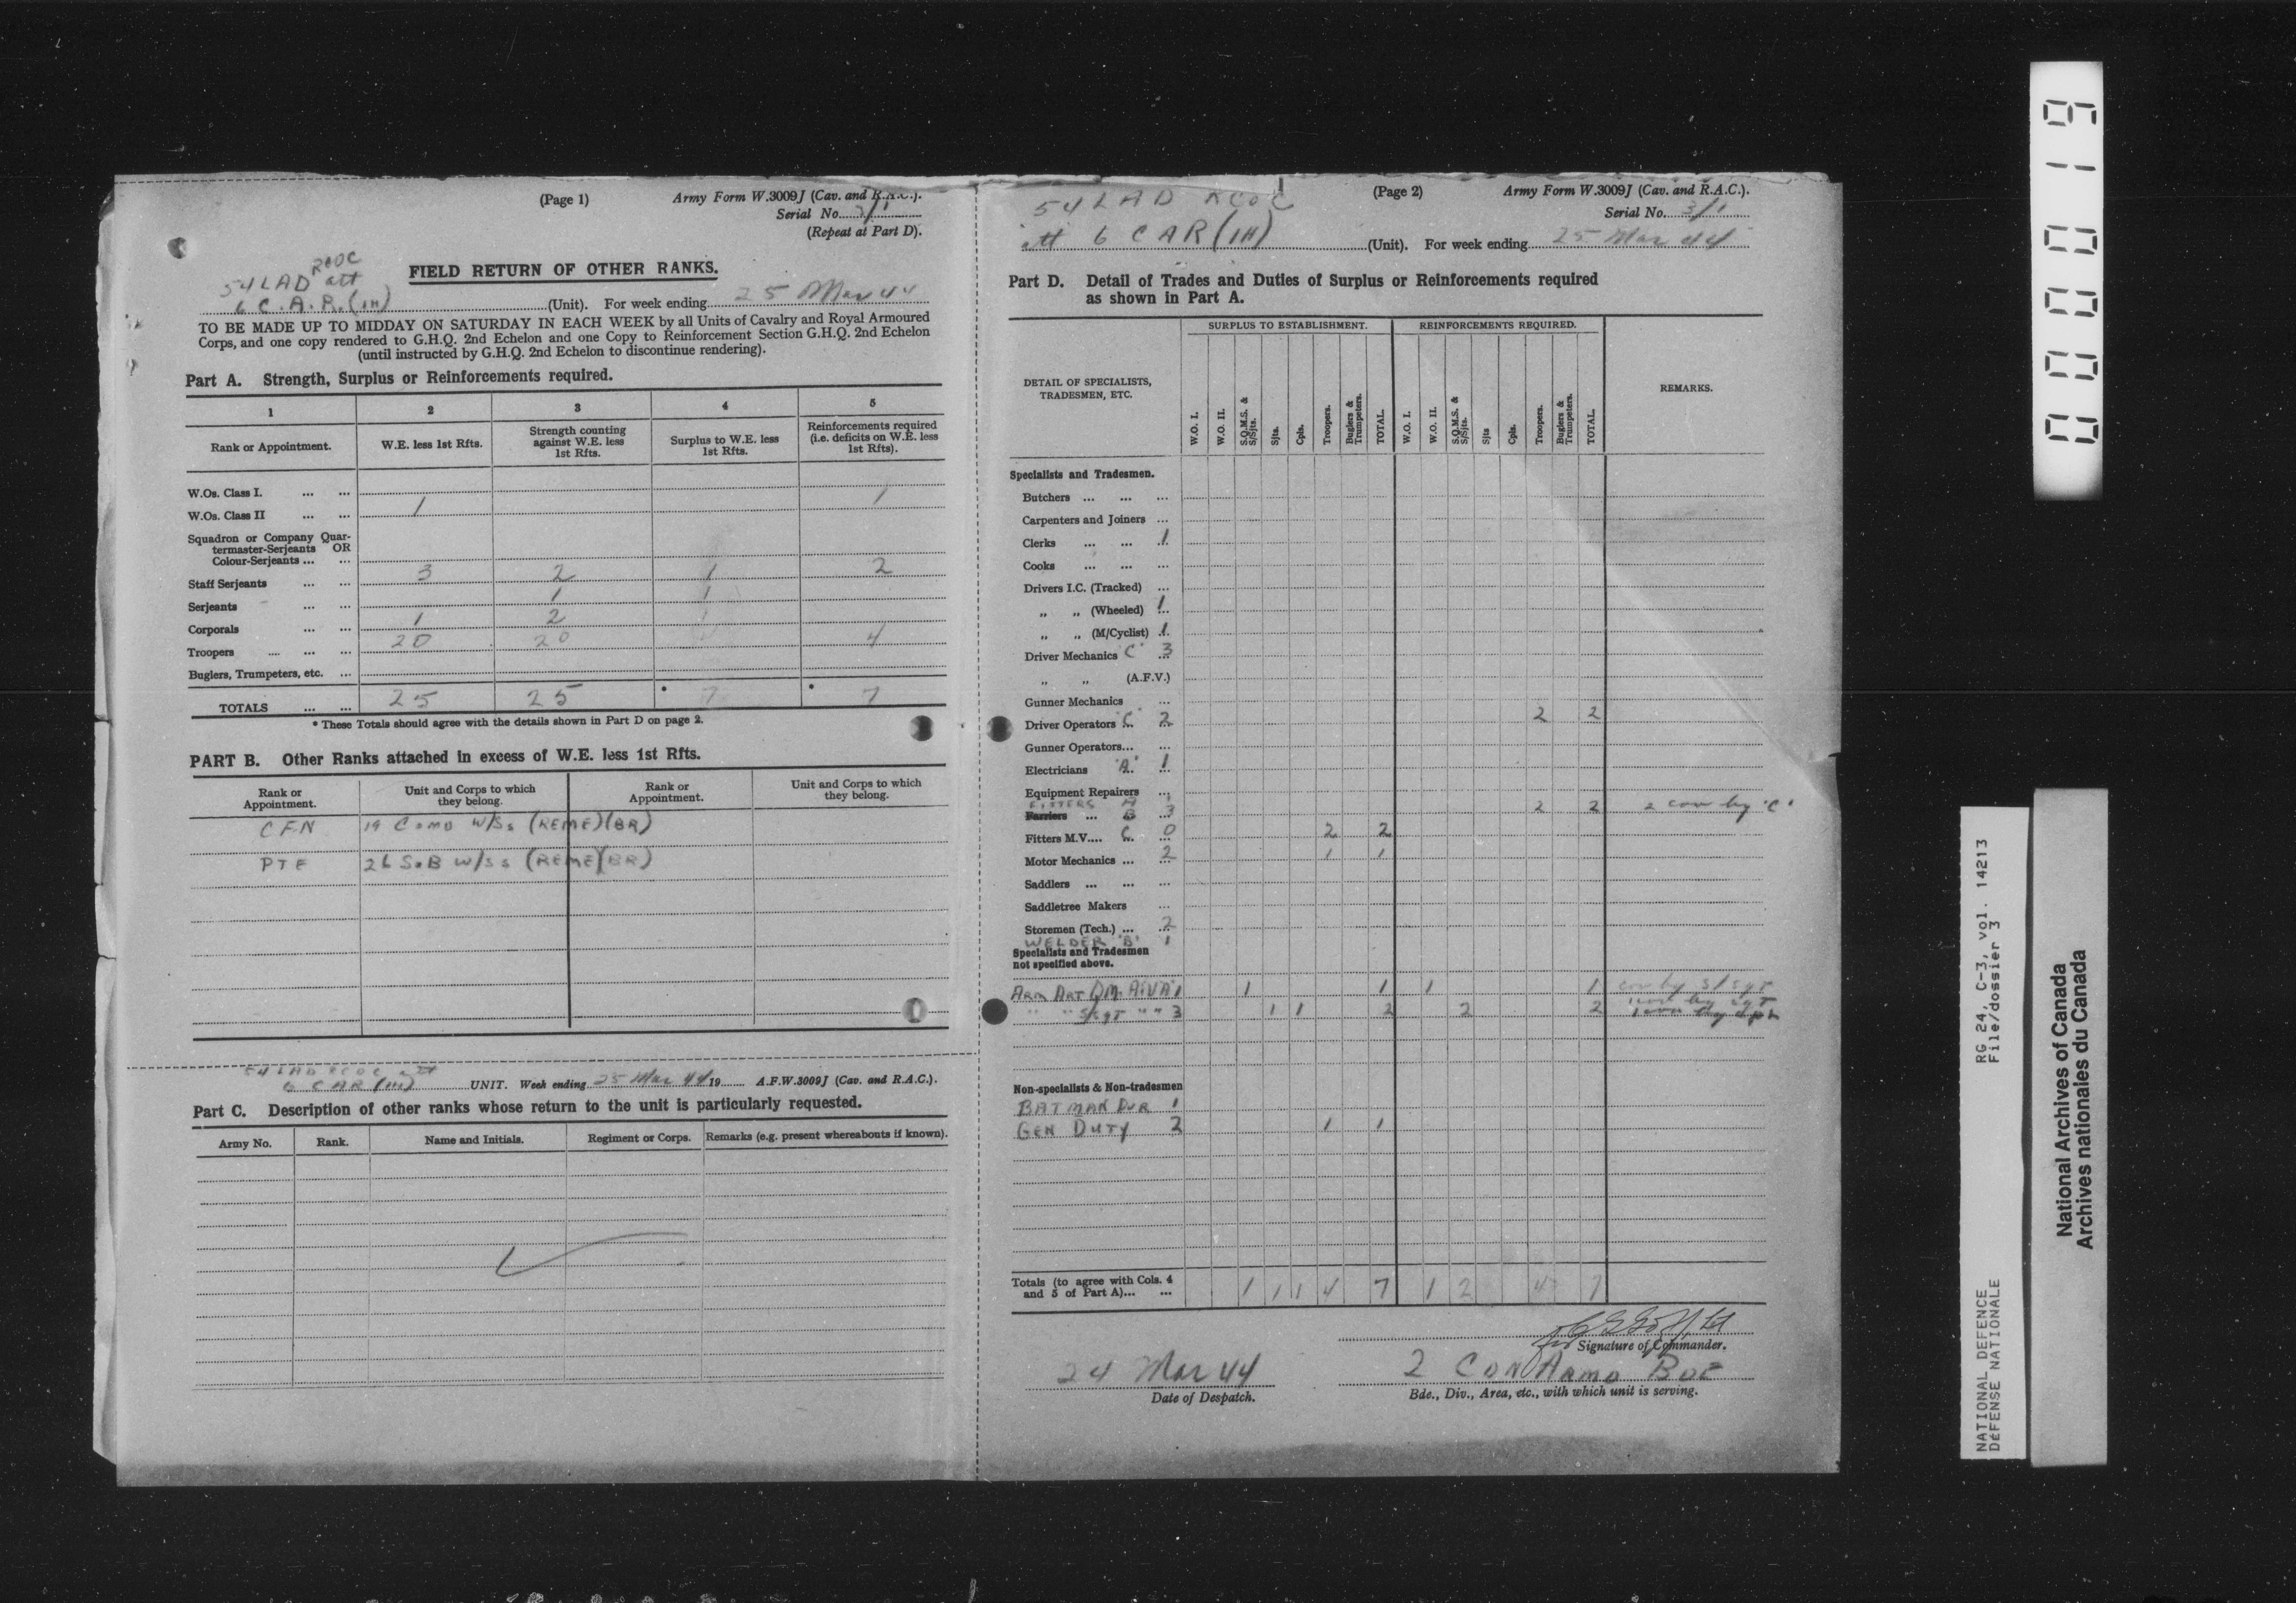 (Page 1)
Army Form W.3009J (Cav. and R.A.C.).
Serial No. 3/1
(Repeat at Part D).
54 LAD RCOC att
6 C.A.R. (1H) (Unit). For week ending 25 Mar 44
FIELD RETURN OF OTHER RANKS.
TO BE MADE UP TO MIDDAY ON SATURDAY IN EACH WEEK by all Units of Cavalry and Royal Armoured
Corps, and one copy rendered to G.H.Q. 2nd Echelon and one Copy to Reinforcement Section G.H.Q. 2nd Echelon
(until instructed by G.H.Q. 2nd Echelon to discontinue rendering).
Part A. Strength, Surplus or Reinforcements required.
1 2 3 4 5
Rank or Appointment. W.E. less 1st Rfts. Strength counting against W.E. less 1st Rfts. Surplus to W.E. less 1st Rfts. Reinforcements required (i.e. deficits on W.E. less 1st Rfts).
W.Os. Class I. ... ... 1
W.Os. Class II ... ... 1
Squadron or Company Quar-
termaster-Serjeants OR
Colour-Serjeants ... ...
Staff Serjeants ... ... 3 2 1 2
Serjeants ... ... 1 1
Corporals ... ... 1 2 1
Troopers .... ... ... 20 20 4 4
Buglers, Trumpeters, etc. ...
TOTALS ... ... 25 25 * 7 * 7
* These Totals should agree with the details shown in Part D on page 2.
PART B. Other Ranks attached in excess of W.E. less 1st Rfts.
Rank or Appointment. Unit and Corps to which they belong. Rank or Appointment. Unit and Corps to which they belong.
CFN 19 Comd W/Ss (REME)(BR)
PTE 26 S.B W/Ss (REME)(BR)
54 LAD RCOC att
6 CAR (1H) UNIT. Week ending 25 Mar 44 19 A.F.W.3009J (Cav. and R.A.C.).
Part C. Description of other ranks whose return to the unit is particularly requested.
Army No. Rank. Name and Initials. Regiment or Corps. Remarks (e.g. present whereabouts if known).
(Page 2)
Army Form W.3009J (Cav. and R.A.C.).
Serial No. 3/1
54 LAD RCOC
att 6 CAR (1H) (Unit). For week ending 25 Mar 44
Part D. Detail of Trades and Duties of Surplus or Reinforcements required
as shown in Part A.
SURPLUS TO ESTABLISHMENT. REINFORCEMENTS REQUIRED.
DETAIL OF SPECIALISTS, TRADESMEN, ETC. W.O. I. W.O. II. S.Q.M.S. & S/Sjts. Sjts. Cpls. Troopers. Buglers & Trumpeters. TOTAL. W.O. I. W.O. II. S.Q.M.S. & S/Sjts. Sjts Cpls. Troopers. Buglers & Trumpeters. TOTAL. REMARKS.
Specialists and Tradesmen.
Butchers ... ... ...
Carpenters and Joiners ...
Clerks ... ... 1
Cooks ... ... ...
Drivers I.C. (Tracked) ...
„ „ (Wheeled) 1
„ „ (M/Cyclist) 1
Driver Mechanics 'C' 3
„ „ (A.F.V.)
Gunner Mechanics ...
Driver Operators C 2 2 2
Gunner Operators... ...
Electricians 'A' 1
Equipment Repairers ...
FITTERS A 1
Farriers ... B 3 2 2 2 cov by 'C'
Fitters M.V.... C 0 2 2
Motor Mechanics ... 2 1 1
Saddlers ... ... ...
Saddletree Makers ...
Storemen (Tech.) ... 2
WELDER 'B' 1
Specialists and Tradesmen
not specified above.
Arm Art QM. A.V'A' 1 1 1 1 1 cov by S/Sgt
" " S/Sgt " " 3 1 1 2 2 2 1 cov by Sgt
1 cov by Cpl
Non-specialists & Non-tradesmen
BATMAN DVR 1
GEN DUTY 2 1 1
Totals (to agree with Cols. 4
and 5 of Part A)... ... 1 1 1 4 7 1 2 4 7
Signature of Commander.
24 Mar 44
Date of Despatch.
2 CDN Armd BDE
Bde., Div., Area, etc., with which unit is serving.
000019
RG 24, C-3, vol. 14213
File/dossier 3
NATIONAL DEFENCE
DÉFENSE NATIONALE
National Archives of Canada
Archives nationales du Canada